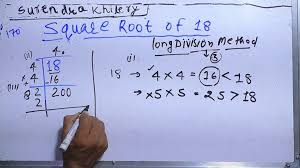 Surendra Khilery
170
Square Root of 18
Long Division Method
(i)
4.
4 18
4 -16
8 2 200
2
(ii)
18 → 4 × 4 = 16 < 18
→ ×5 × 5 = 25 > 18